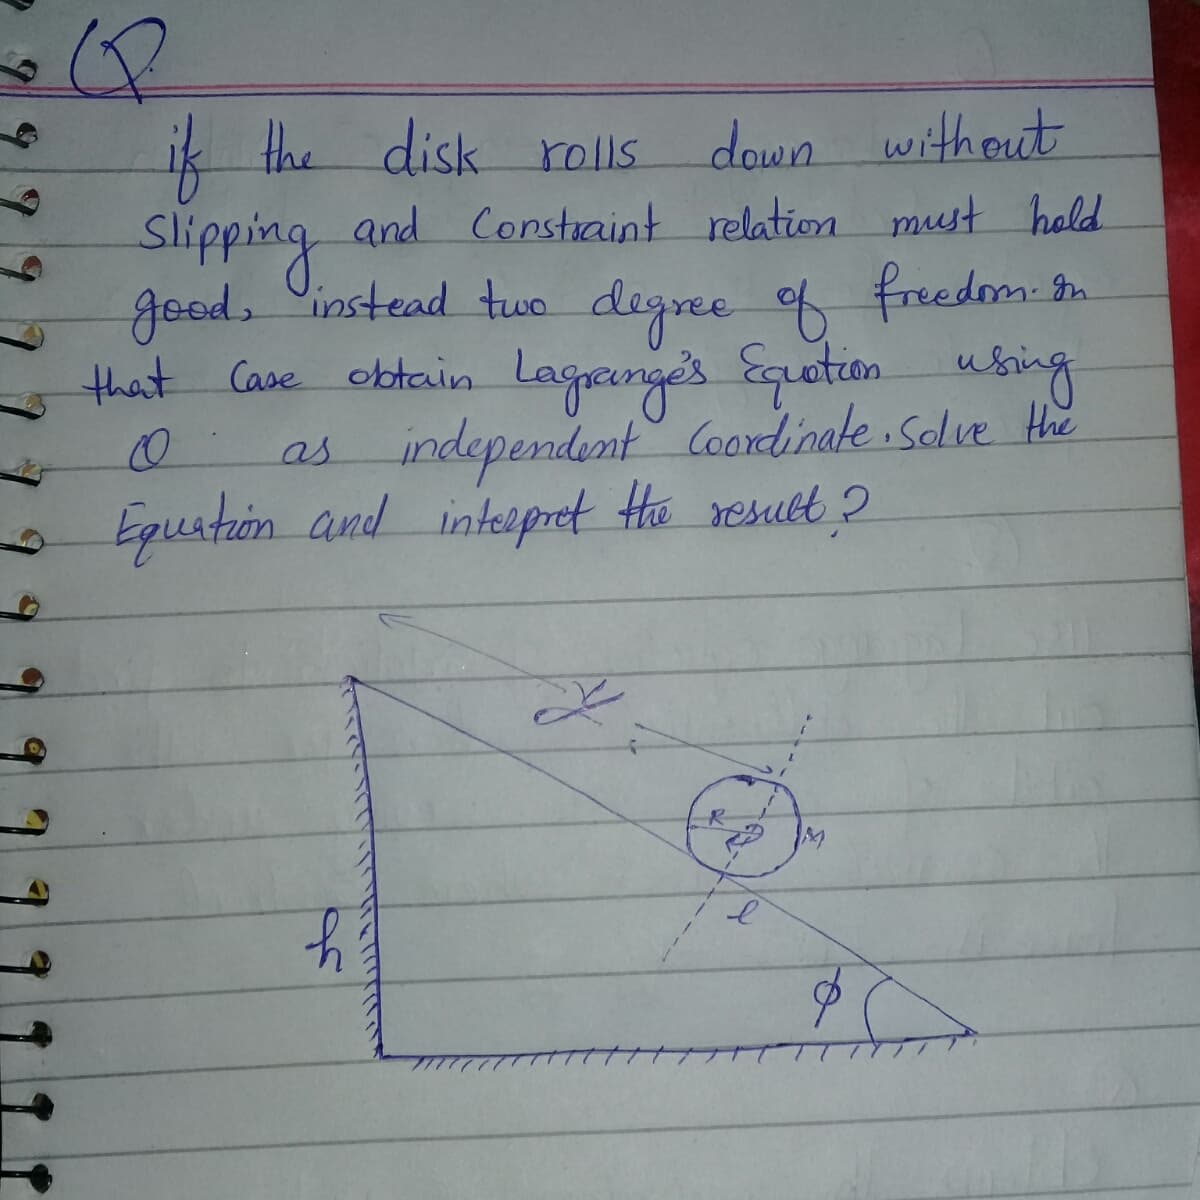 Q.
if the disk rolls down without
Slipping and Constraint relation must hold
good, instead two degree of freedom. In
that Case obtain Lagrange's Equation using
as independent Coordinate. Solve the
Equation and interpret the result?
R
M
l
h
ϕ